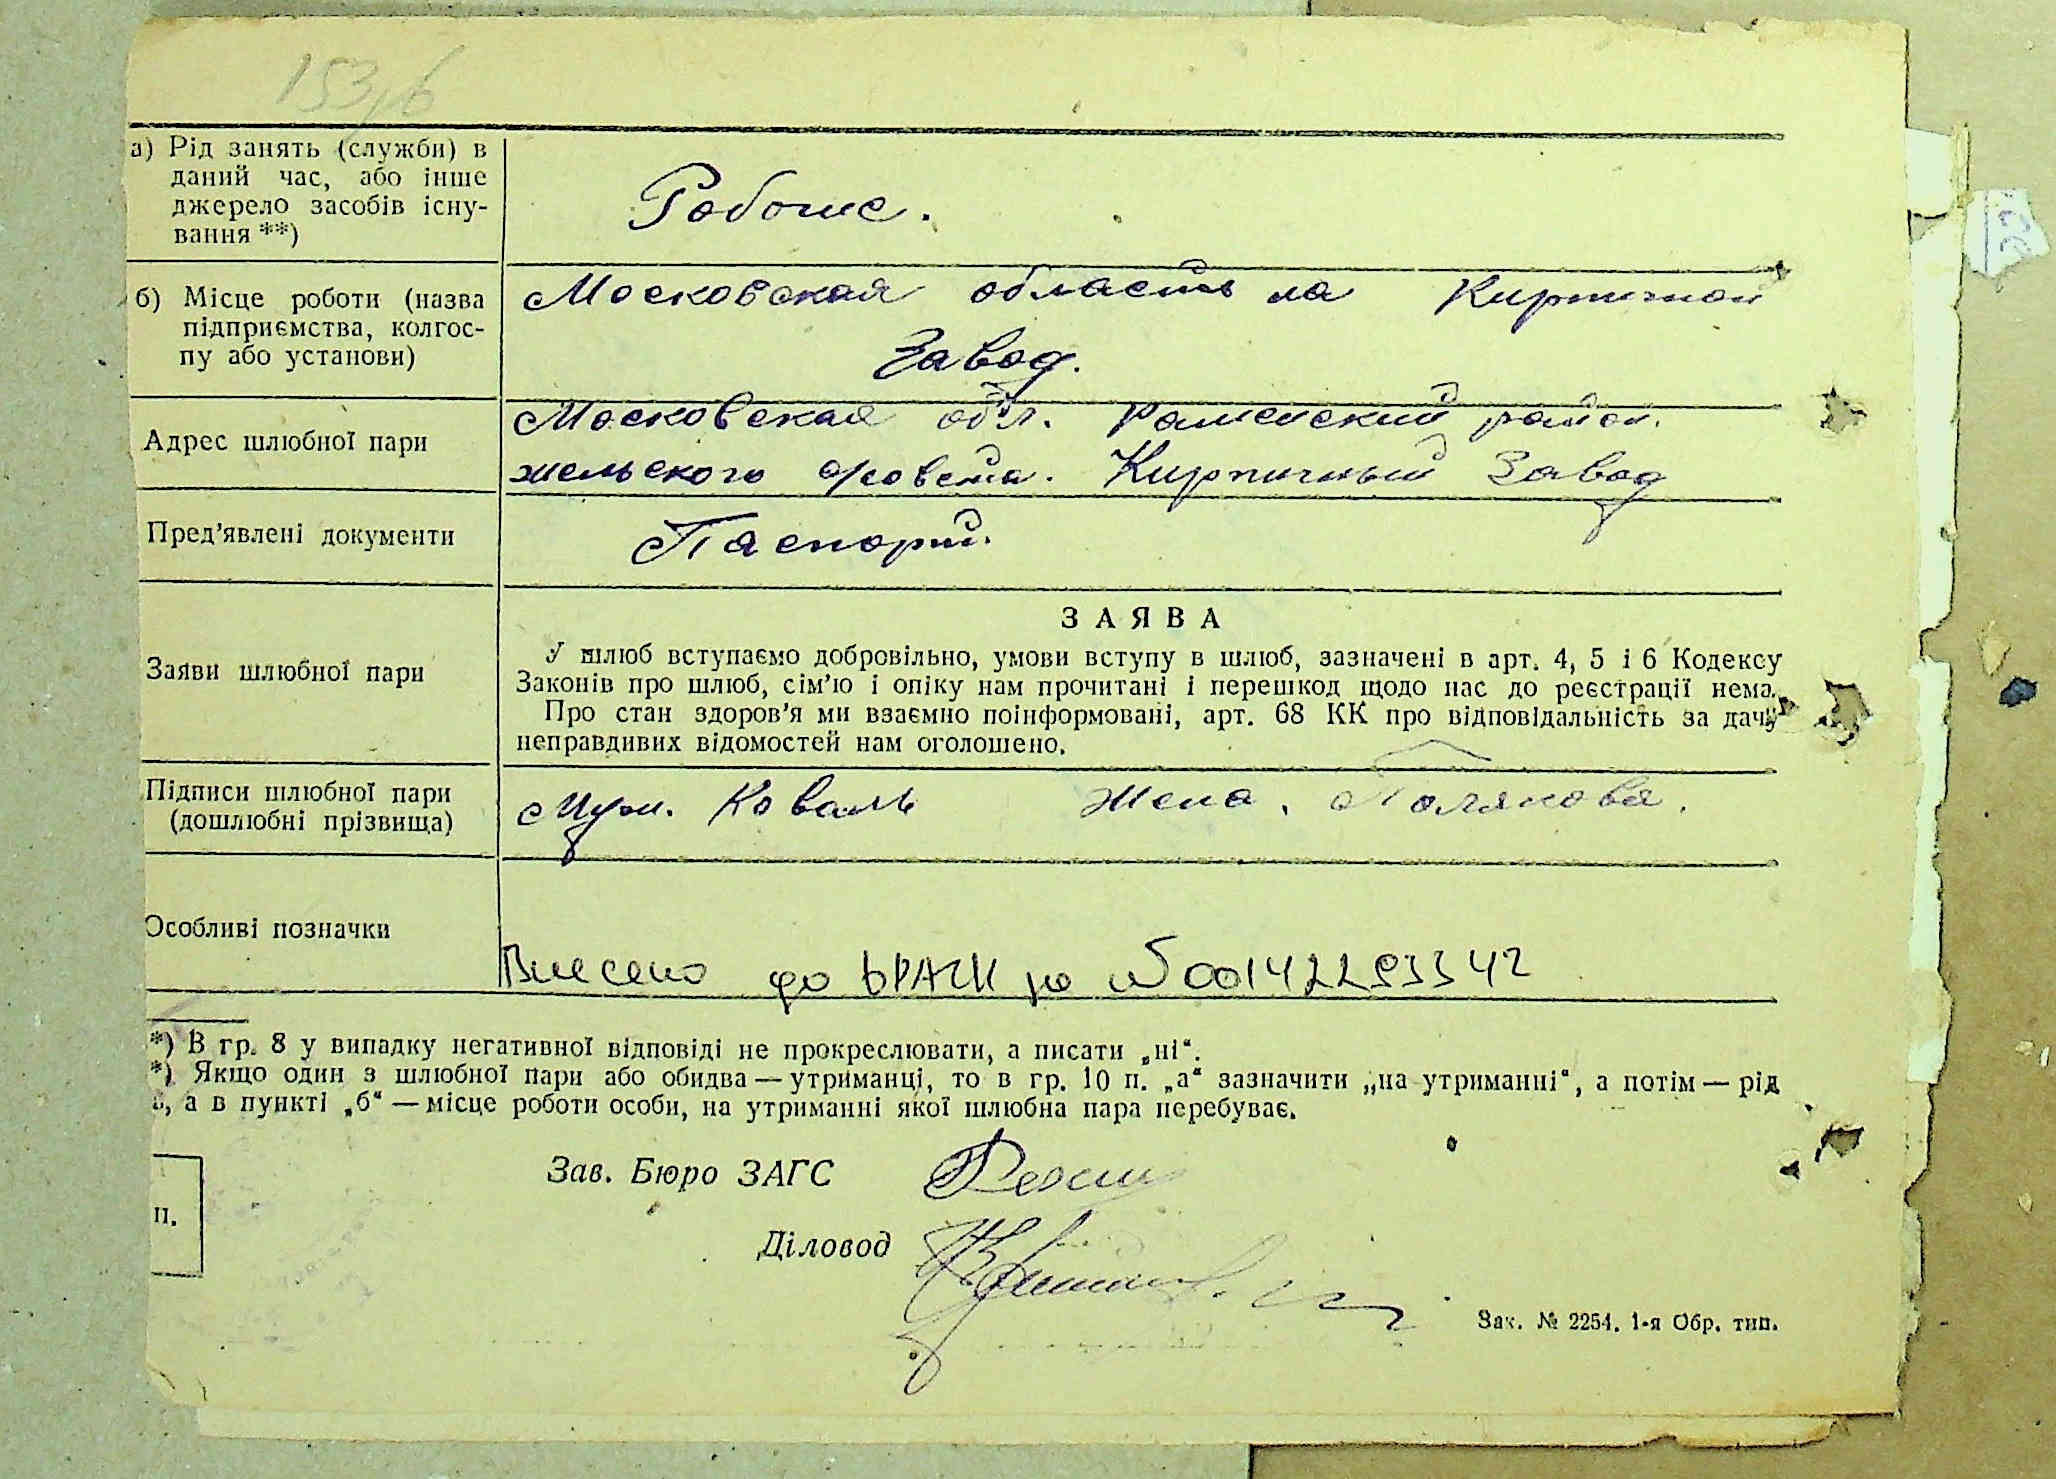 а) Рід занять (служби) в
даний час, або інше
джерело засобів існу-
вання **)
Рабочие.
б) Місце роботи (назва
підприємства, колгос-
пу або установи)
Московская область на Кирпичном
Завод.
Адрес шлюбної пари
Московская обл. Раменский район.
сельского совета. Кирпичный Завод
Пред'явлені документи
Паспорт.
Заяви шлюбної пари
ЗАЯВА
У шлюб вступаємо добровільно, умови вступу в шлюб, зазначені в арт. 4, 5 і 6 Кодексу
Законів про шлюб, сім'ю і опіку нам прочитані і перешкод щодо нас до реєстрації нема.
Про стан здоров'я ми взаємно поінформовані, арт. 68 КК про відповідальність за дачу
неправдивих відомостей нам оголошено.
Підписи шлюбної пари
(дошлюбні прізвища)
Муж. Коваль Жена. Полякова.
Особливі позначки
Внесено до ДРАЦС за №00142293342
*) В гр. 8 у випадку негативної відповіді не прокреслювати, а писати „ні“.
*) Якщо один з шлюбної пари або обидва — утриманці, то в гр. 10 п. „а“ зазначити „на утриманні“, а потім — рід
, а в пункті „б“ — місце роботи особи, на утриманні якої шлюбна пара перебуває.
Зав. Бюро ЗАГС
п.
Діловод
Зак. № 2254. 1-я Обр. тип.